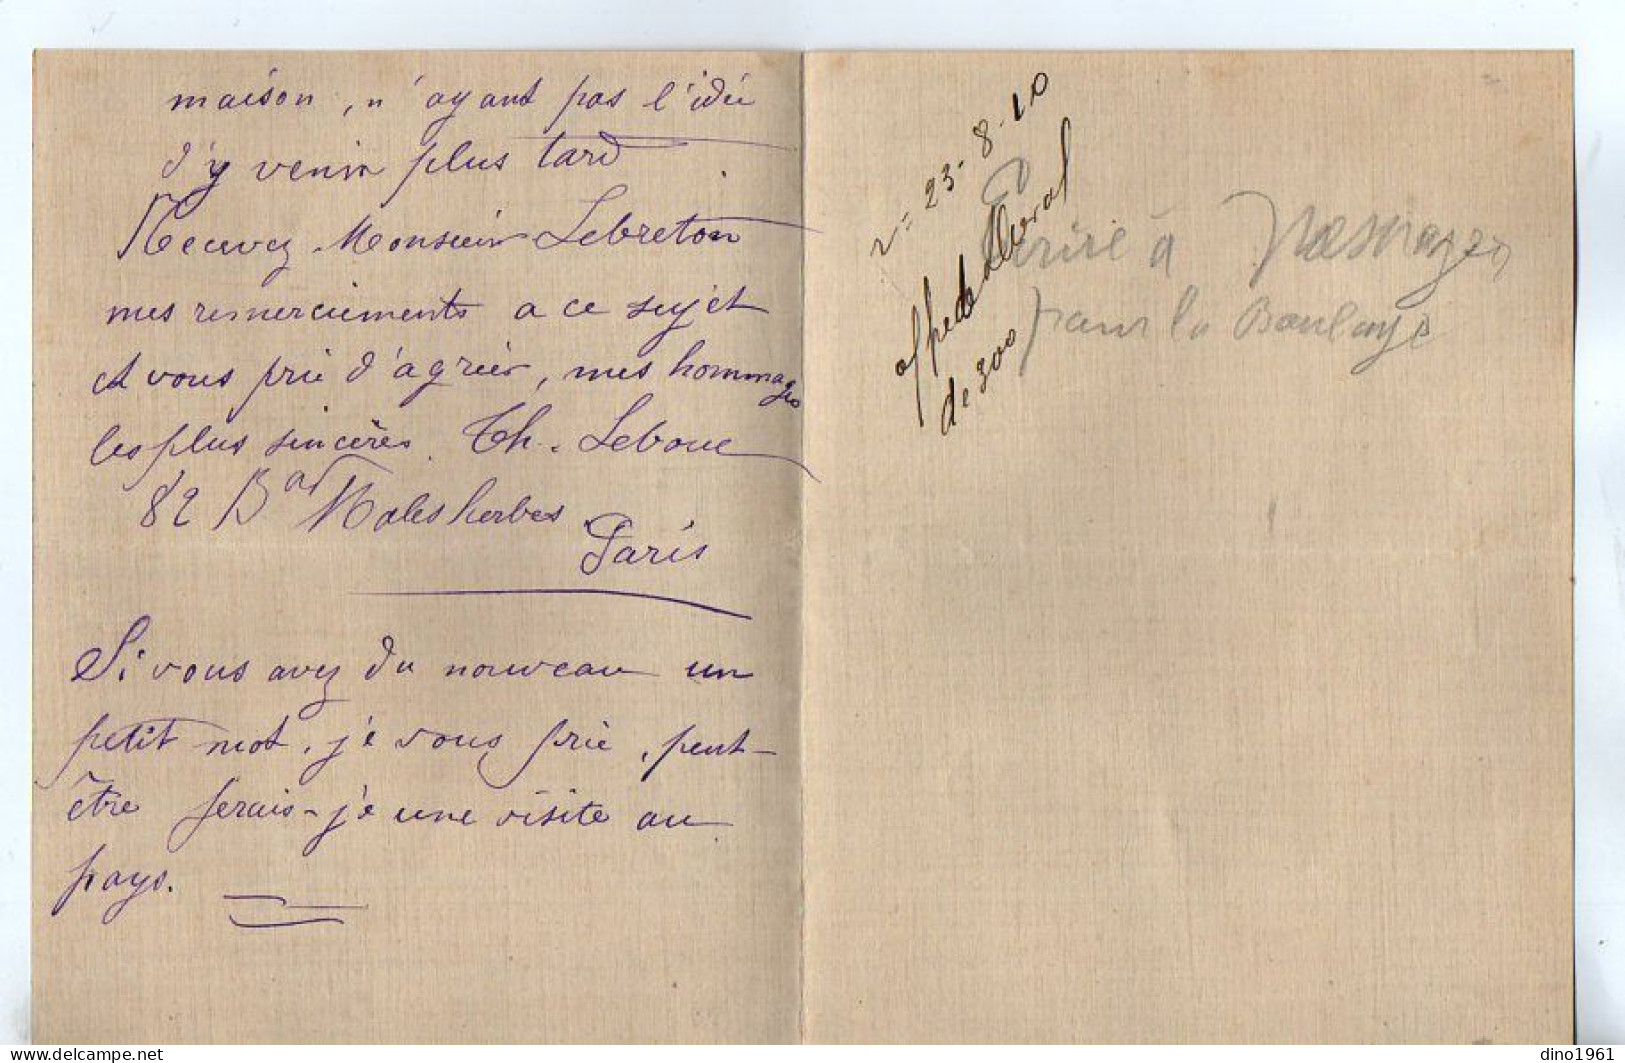 maison, n'ayant pas l'idée
d'y venir plus tard
Recevez Monsieur Lebreton
mes remerciements a ce sujet
et vous prie d'agréer, mes hommages
les plus sincères. Th. Leboue
82 Bard Malesherbes
Paris
Si vous avez du nouveau un
petit mot, je vous prie, peut-
être ferais-je une visite au
pays.
r = 23-8-10
de
de 300
Ecrire à
pour la Boulaye
delcampe.net
dino1961